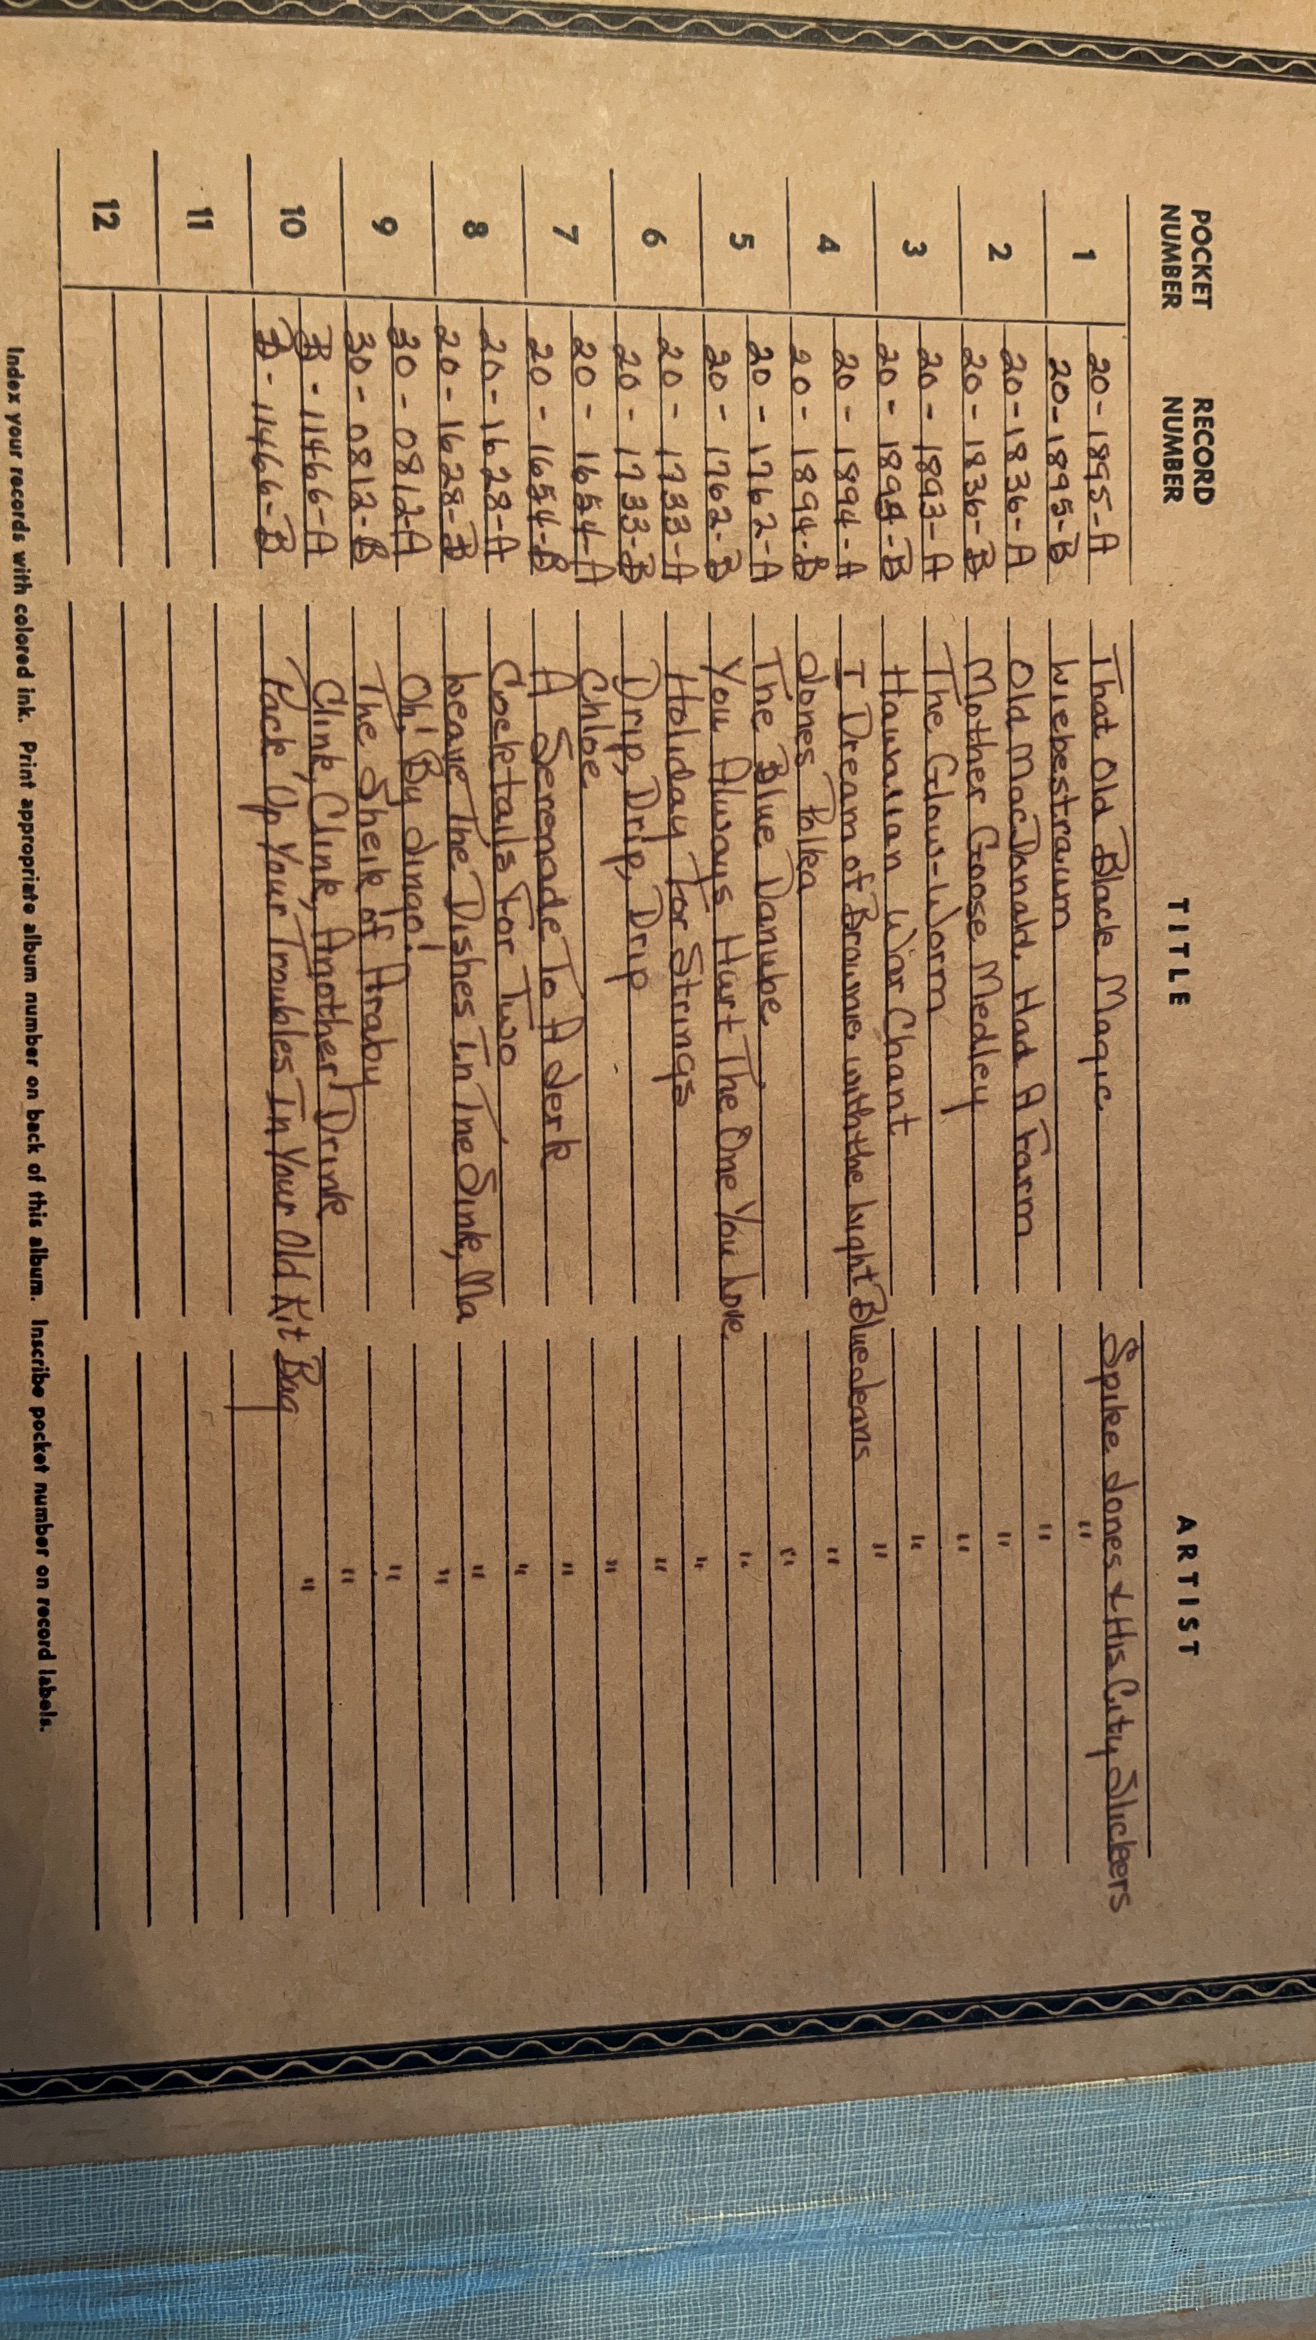 POCKET NUMBER RECORD NUMBER TITLE ARTIST
1 20-1895-A That Old Black Magic Spike Jones & His City Slickers
20-1895-B Liebestraum "
2 20-1836-A Old MacDonald Had A Farm "
20-1836-B Mother Goose Medley "
3 20-1893-A The Glow-Worm "
20-1893-B Hawaiian War Chant "
4 20-1894-A I Dream of Brownie with the Light Blue Jeans "
20-1894-B Jones Polka "
5 20-1762-A The Blue Danube "
20-1762-B You Always Hurt The One You Love "
6 20-1733-A Holiday For Strings "
20-1733-B Drip, Drip, Drip "
7 20-1654-A Chloe "
20-1654-B A Serenade To A Jerk "
8 20-1628-A Cocktails For Two "
20-1628-B Leave The Dishes In The Sink, Ma "
9 30-0812-A Oh! By Jingo! "
30-0812-B The Sheik of Araby "
10 B-11466-A Clink, Clink, Another Drink "
B-11466-B Pack Up Your Troubles In Your Old Kit Bag "
11
12
Index your records with colored ink. Print appropriate album number on back of this album. Inscribe pocket number on record labels.